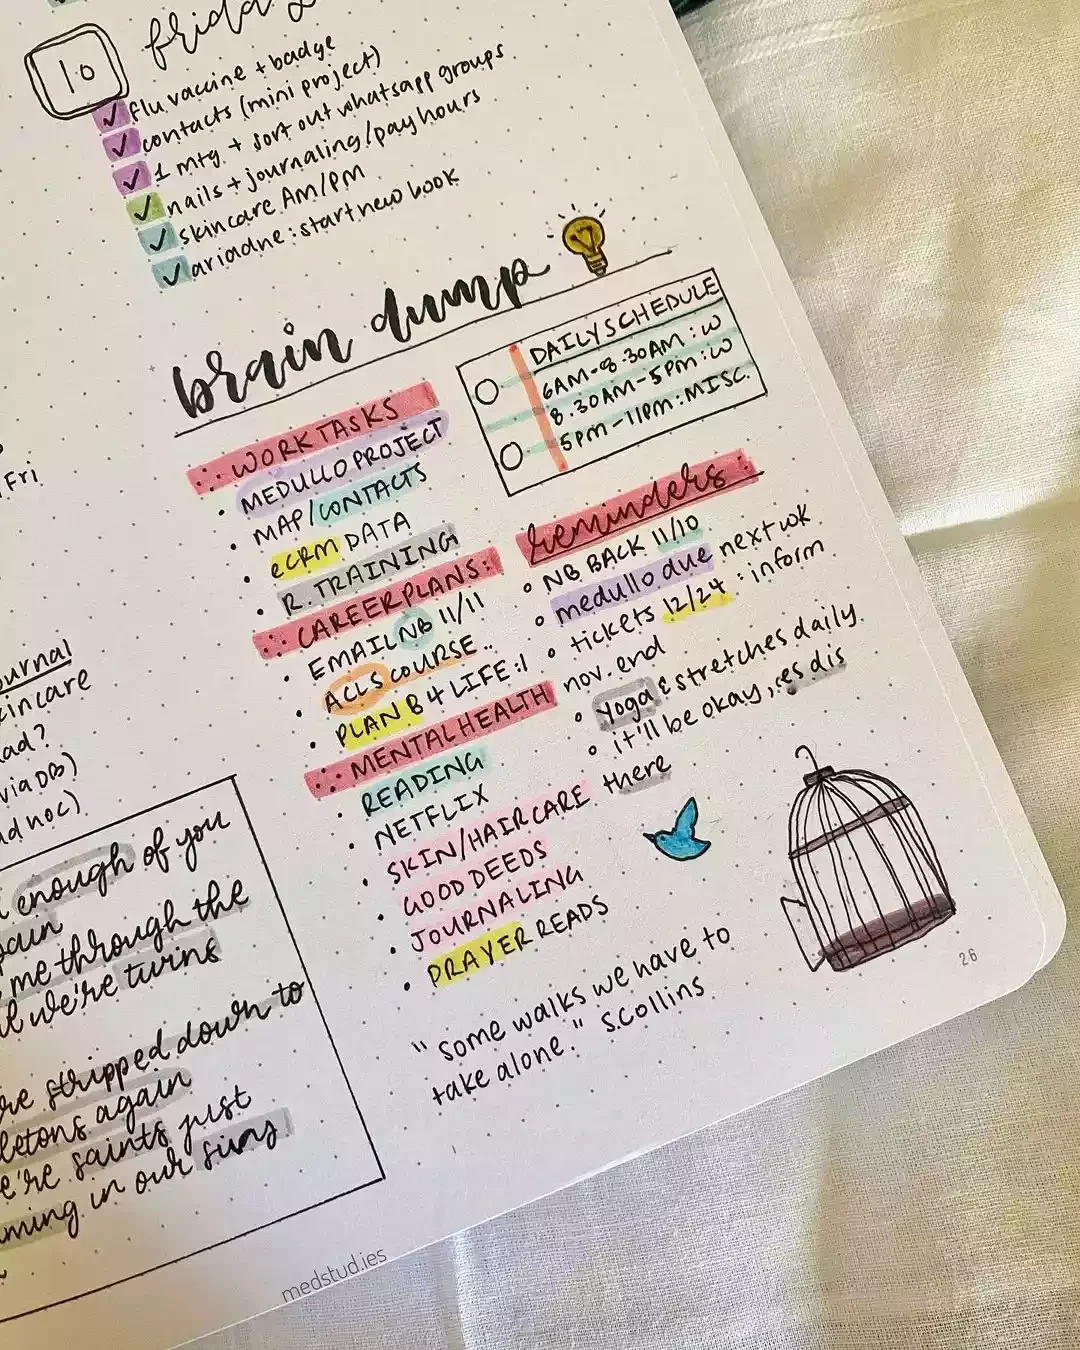 10
friday
flu vaccine + badge
contacts (mini project)
1 mtg. + sort out whatsapp groups
nails + journaling/pay hours
skincare AM/PM
ariadne: start new book
brain dump
DAILY SCHEDULE
6AM-8.30AM: W
8.30AM-5PM: W
5PM-11PM: MISC.
WORK TASKS
MEDULLO PROJECT
MAP/CONTACTS
eCRM DATA
R. TRAINING
CAREER PLANS:
EMAIL NB 11/11
ACLS COURSE..
PLAN B 4 LIFE :|
MENTAL HEALTH
READING
NETFLIX
SKIN/HAIR CARE
GOOD DEEDS
JOURNALING
PRAYER READS
reminders:
NB BACK 11/10
medullo due next wk
tickets 12/24: inform
nov. end
yoga & stretches daily.
it'll be okay,
there
"some walks we have to
take alone." S.Collins
26
Fri
via DB)
enough of you
me through the
we're twins
stripped down to
again
saints just
in our
medstud.ies